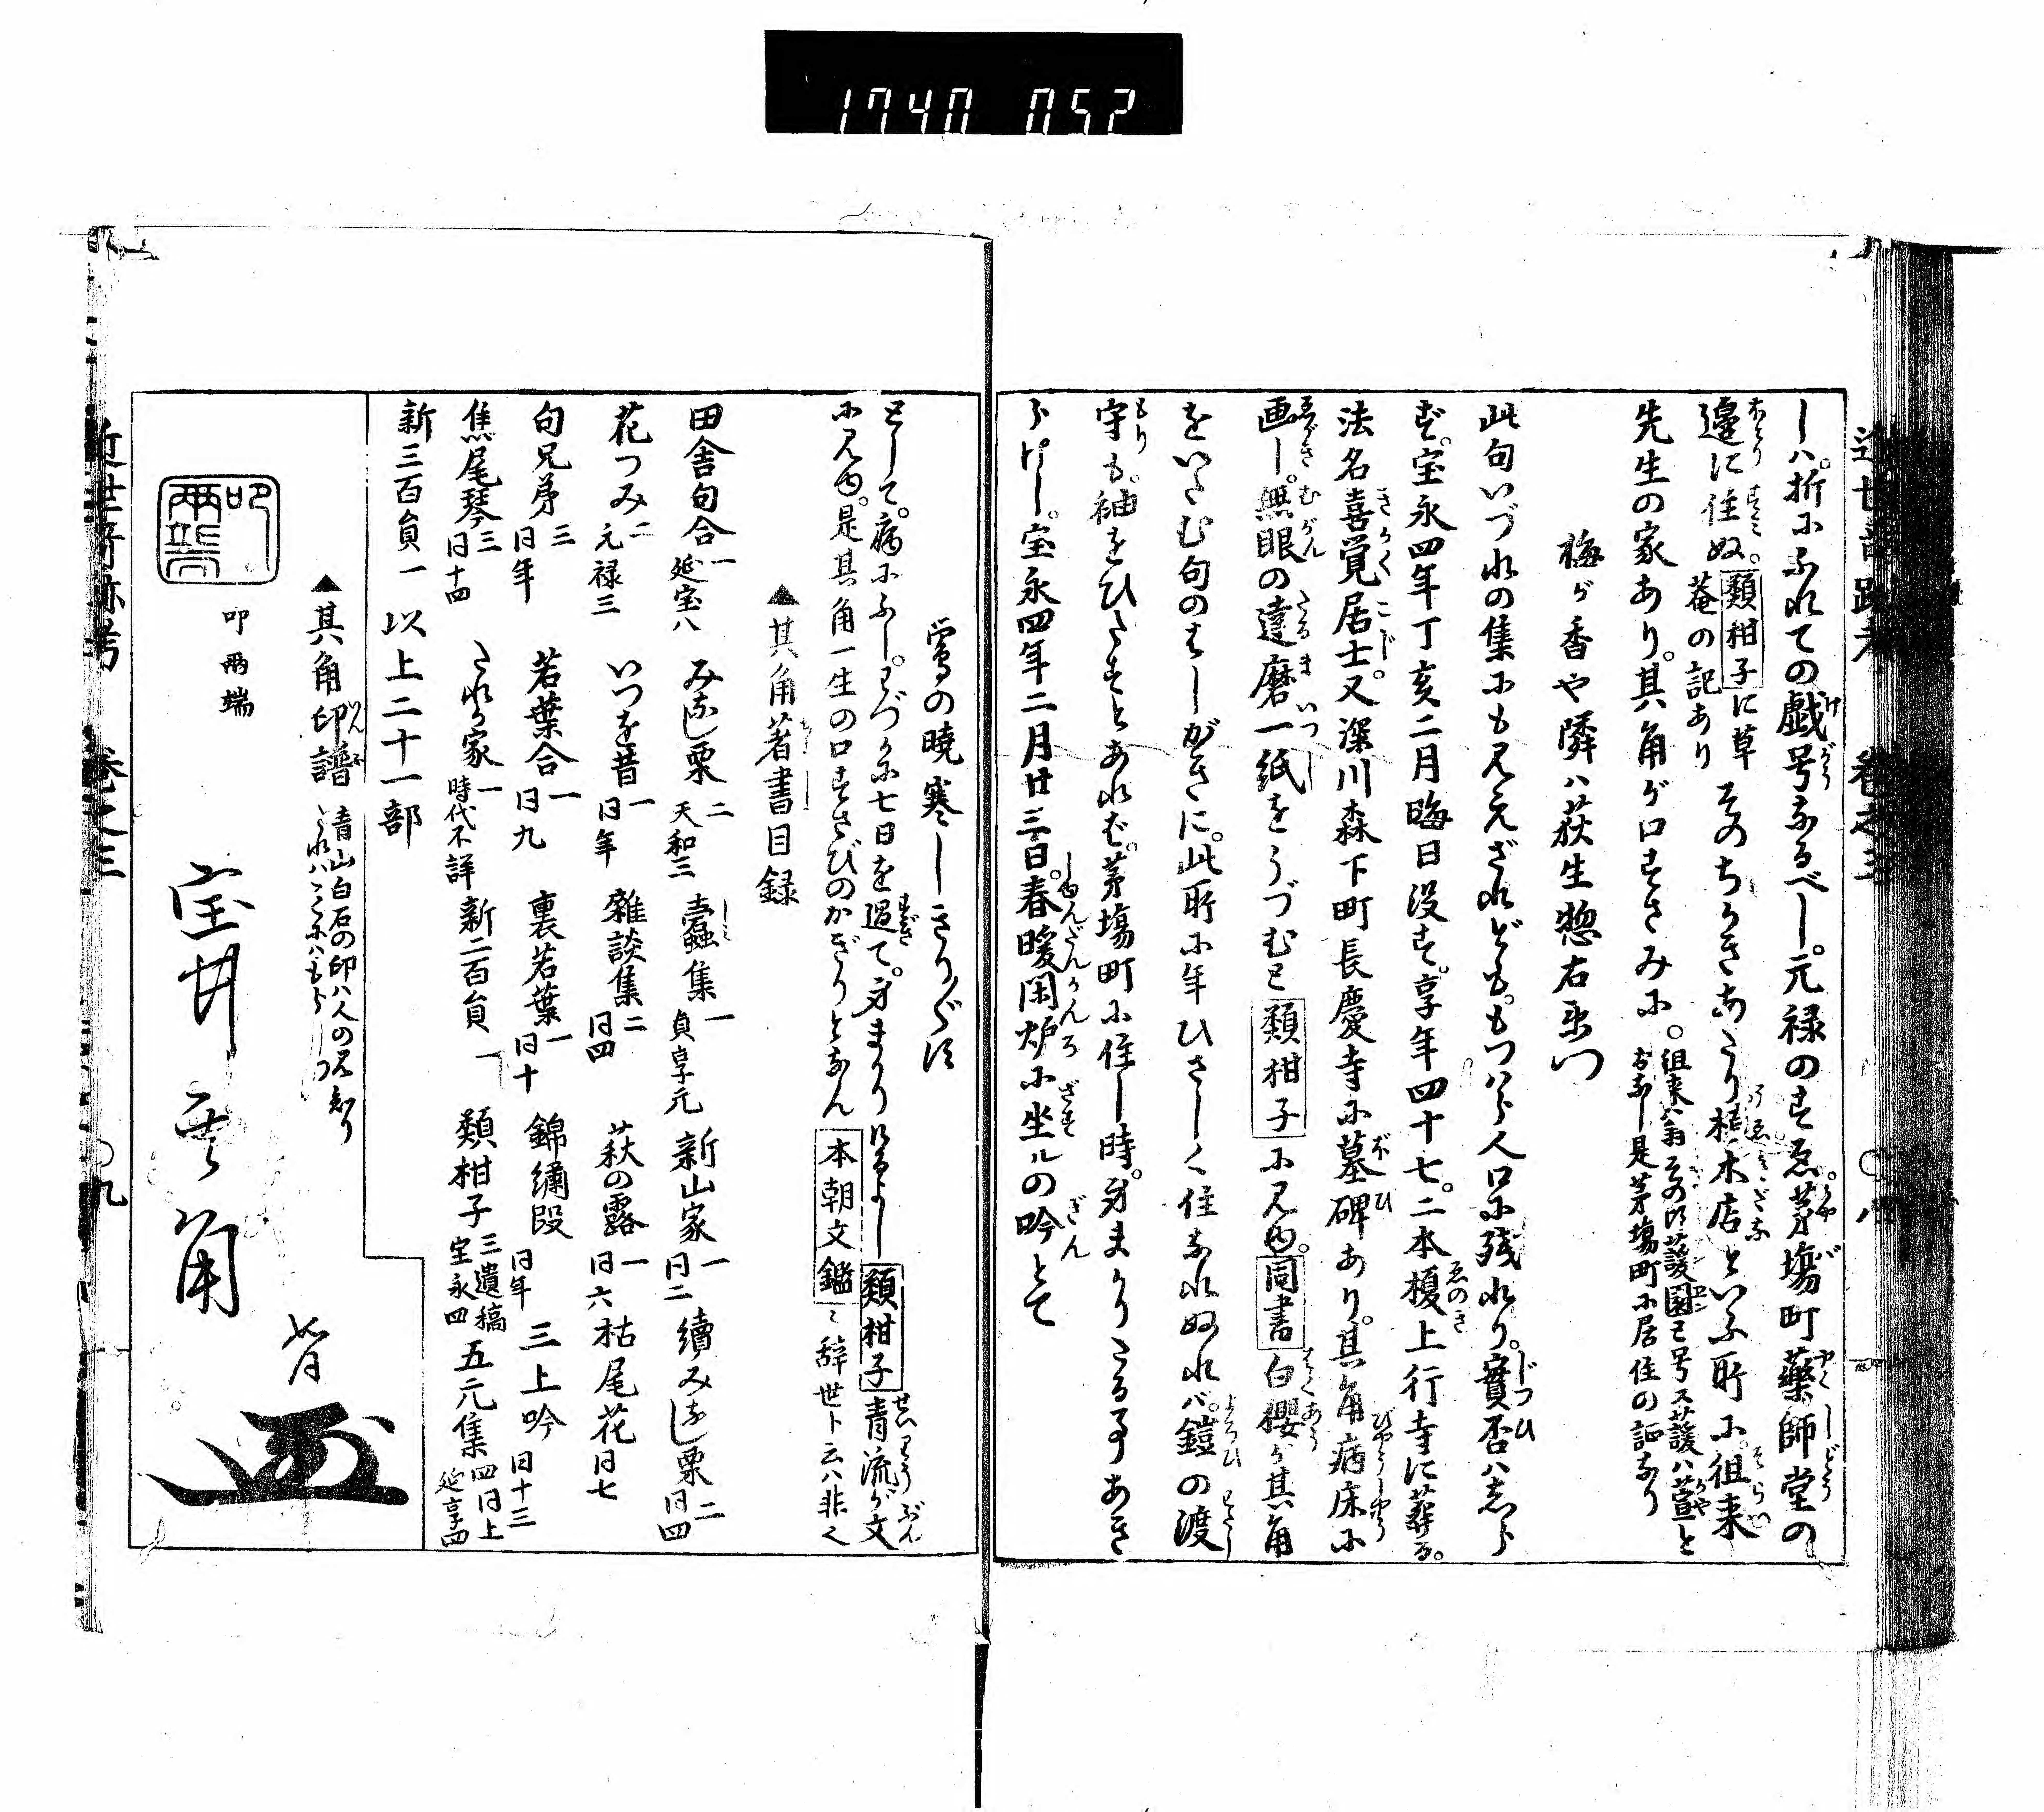 1740 052
しハ。折にふれての戯号なるべし。元禄のすゑ。茅場町薬師堂の
邊に住ぬ。類柑子に草菴の記あり そのちかきあたり植木店といふ所に。徂来
先生の家あり。其角が口ずさみに。徂来翁その比蘐園と号ス蘐ハ萱とおなし是茅場町に居住の証なり
梅が香や隣ハ荻生惣右衛門
此句いづれの集にも見えざれども。もつハら人口に残れり。實否ハしら
ず。宝永四年丁亥二月晦日没す。享年四十七。二本榎上行寺に葬る。
法名喜覚居士。又深川森下町長慶寺に墓碑あり。其角病床に
画し。無眼の達磨一紙をうづむと類柑子に見ゆ。同書白櫻が其角
をいたむ句のはしがきに。此所に年ひさしく住なれぬれバ。鎧の渡
守も。袖をひたすとあれば。茅場町に住し時。身まかりたる事あき
らけし。宝永四年二月廿三日。春暖閑炉に坐ルの吟とて
鴬の暁寒しきり〲す
として。病にふし。わづかに七日を過て。身まかりけるよし類柑子青流が文
に見ゆ。是其角一生の口ずさびのかぎりとなん 本朝文鑑ニ辞世ト云ハ非く
▲其角著書目録
田舎句合 一 延宝八 みなし栗 二 天和三 蠹集 一 貞享元 新山家 一 同二 續みなし栗 二 同四
花つみ 二 元禄三 いつを昔 一 同年 雜談集 二 同四 萩の露 一 同六 枯尾花 同七
句兄弟 三 同年 若葉合 一 同九 裏若葉 一 同十 錦繡段 同年 三上吟 同十三
焦尾琴 三 同十四 たれが家 一 時代不詳 新二百員 一 類柑子 三遺稿 宝永四 五元集 四同上 延享四
新三百員 一 以上二十一部
▲其角印譜 青山白石の印ハ人の見知りたれハこゝにハもらしつ
叩兩端
叩兩端
宝井其角
近世奇跡考 巻之三 〇八
近世奇跡考 巻之三 〇九